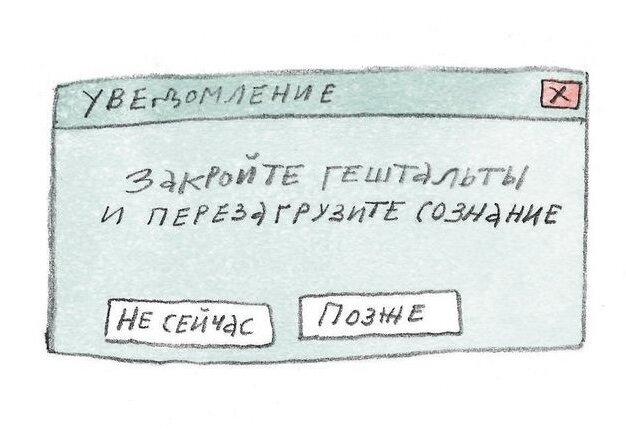 УВЕДОМЛЕНИЕ X
ЗАКРОЙТЕ ГЕШТАЛЬТЫ
И ПЕРЕЗАГРУЗИТЕ СОЗНАНИЕ
НЕ СЕЙЧАС ПОЗЖЕ